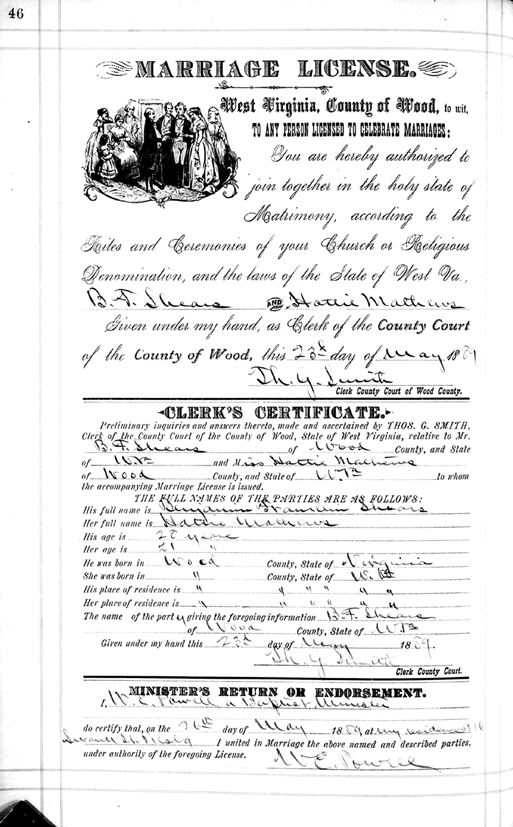 46
MARRIAGE LICENSE.
West Virginia, County of Wood, to wit,
TO ANY PERSON LICENSED TO CELEBRATE MARRIAGES:
You are hereby authorized to
join together in the holy state of
Matrimony, according to the
Rites and Ceremonies of your Church or Religious
Denomination, and the laws of the State of West Va.,
B. F. Shears AND Hattie Mathews
Given under my hand, as Clerk of the County Court
of the County of Wood, this 23d day of May 1889
Th. G. Smith
Clerk County Court of Wood County.
CLERK'S CERTIFICATE.
Preliminary inquiries and answers thereto, made and ascertained by THOS. G. SMITH,
Clerk of the County Court of the County of Wood, State of West Virginia, relative to Mr.
B. F. Shears of Wood County, and State
of W. Va and Miss Hattie Mathews
of Wood County, and State of W. Va to whom
the accompanying Marriage License is issued.
THE FULL NAMES OF THE PARTIES ARE AS FOLLOWS:
His full name is Benjamin Franklin Shears
Her full name is Hattie Mathews
His age is 28 years
Her age is 21 "
He was born in Wood County, State of Virginia
She was born in " County, State of W. Va
His place of residence is " " " " "
Her place of residence is " " " " "
The name of the party giving the foregoing information B. F. Shears
of Wood County, State of W. Va
Given under my hand this 23d day of May 1889.
Th. G. Smith
Clerk County Court.
MINISTER'S RETURN OR ENDORSEMENT.
I, W. E. Powell a Baptist Minister
do certify that, on the 26th day of May 1889 at my residence 716
I united in Marriage the above named and described parties,
under authority of the foregoing License. W. E. Powell